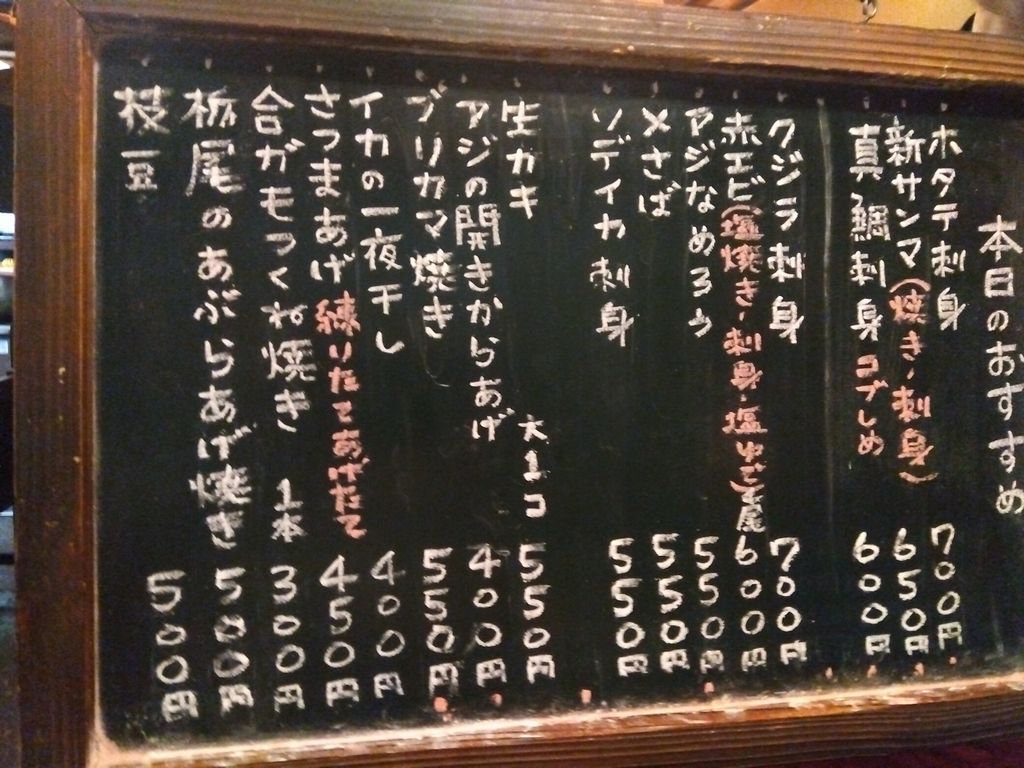 本日のおすすめ
ホタテ刺身 700円
新サンマ(焼き・刺身) 650円
真鯛刺身コブしめ 600円
クジラ刺身 700円
赤エビ(塩焼き・刺身・塩ゆで)2尾 600円
アジなめろう 550円
〆さば 550円
ソデイカ刺身 550円
生カキ 大1コ 550円
アジの開きからあげ 400円
ブリカマ焼き 550円
イカの一夜干し 400円
さつまあげ練りたてあげたて 450円
合ガモつくね焼き 1本 300円
栃尾のあぶらあげ焼き 500円
枝豆 500円